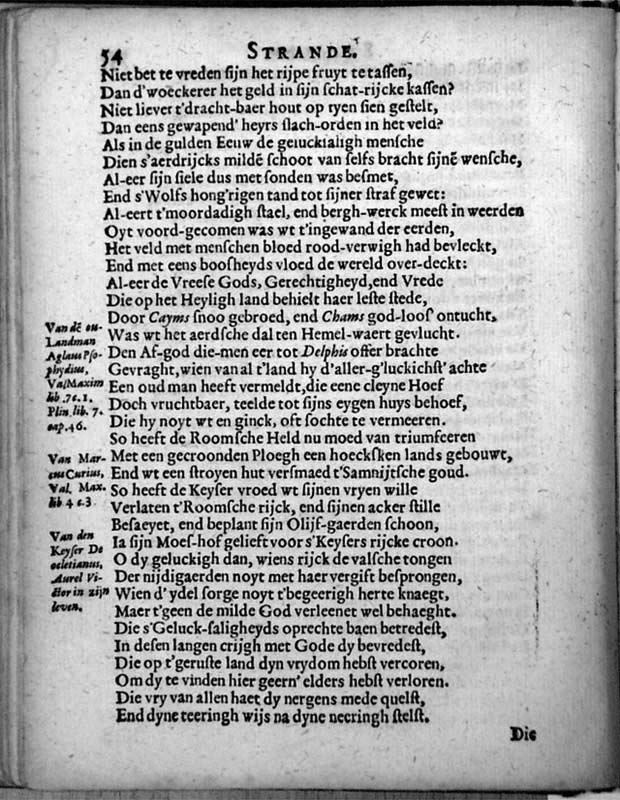 54 STRANDE.
Niet bet te vreden ſijn het rijpe fruyt te taſſen,
Dan d'woeckerer het geld in ſijn ſchat-rijcke kaſſen?
Niet liever t'dracht-baer hout op ryen ſien geſtelt,
Dan eens gewapend' heyrs ſlach-orden in het veld?
Als in de gulden Eeuw de geluckſaligh menſche
Dien s'aerdrijcks mildē ſchoot van ſelfs bracht ſijnē wenſche,
Al-eer ſijn ſiele dus met ſonden was beſmet,
End s'Wolfs hong'rigen tand tot ſijner ſtraf gewet:
Al-eert t'moordadigh ſtael, end bergh-werck meeſt in weerden
Oyt voord-gecomen was wt t'ingewand der eerden,
Het veld met menſchen bloed rood-verwigh had bevleckt,
End met eens booſheyds vloed de wereld over-deckt:
Al-eer de Vreeſe Gods, Gerechtigheyd, end Vrede
Die op het Heyligh land behielt haer leſte ſtede,
Door Cayms ſnoo gebroed, end Chams god-loof ontucht,
Was wt het aerdſche dal ten Hemel-waert gevlucht.
Den Af-god die-men eer tot Delphis offer brachte
Gevraght, wien van al t'land hy d'aller-g'luckichſt' achte
Een oud man heeft vermeldt, die eene cleyne Hoef
Doch vruchtbaer, teelde tot ſijns eygen huys behoef,
Die hy noyt wt en ginck, oft ſochte te vermeeren.
So heeft de Roomſche Held nu moed van triumfeeren
Met een gecroonden Ploegh een hoeckſken lands gebouwt,
End wt een ſtroyen hut verſmaed t'Samnijtſche goud.
So heeft de Keyſer vroed wt ſijnen vryen wille
Verlaten t'Roomſche rijck, end ſijnen acker ſtille
Beſaeyet, end beplant ſijn Olijf-gaerden ſchoon,
Ia ſijn Moeſ-hof gelieft voor s'Keyſers rijcke croon.
O dy geluckigh dan, wiens rijck de valſche tongen
Der nijdigaerden noyt met haer vergift beſprongen,
Wien d'ydel ſorge noyt t'begeerigh herte knaegt,
Maer t'geen de milde God verleenet wel behaeght.
Die s'Geluck-ſaligheyds oprechte baen betredeſt,
In deſen langen crijgh met Gode dy bevredeſt,
Die op t'geruſte land dyn vrydom hebſt vercoren,
Om dy te vinden hier geern' elders hebſt verloren.
Die vry van allen haet dy nergens mede quelſt,
End dyne teeringh wijs na dyne neeringh ſtelſt.
Die
Van dē ou-
Landman
Aglaus Pſo-
phydius,
Val Maxim
lib .7 c. 1.
Plin lib. 7.
cap. 46.
Van Mar-
cus Curius,
Val. Max.
lib 4 c. 3
Van den
Keyſer Di-
ocletianus,
Aurel Vi-
ctor in zijn
leven.